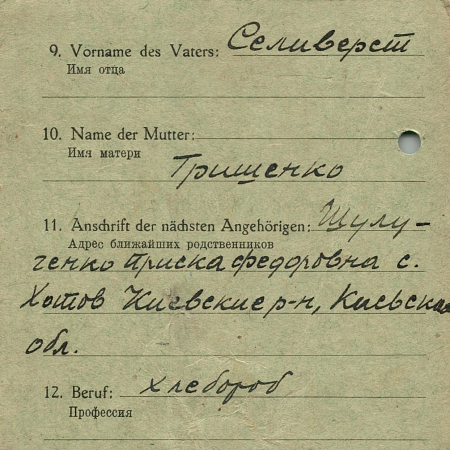 9. Vorname des Vaters: Селиверст
Имя отца
10. Name der Mutter:
Имя матери
Грищенко
11. Anschrift der nächsten Angehörigen: Шулу-
Адрес ближайших родственников
ченко Приска федоровна с.
Хотов Киевские р-н, Киевская
обл.
12. Beruf: хлебороб
Профессия